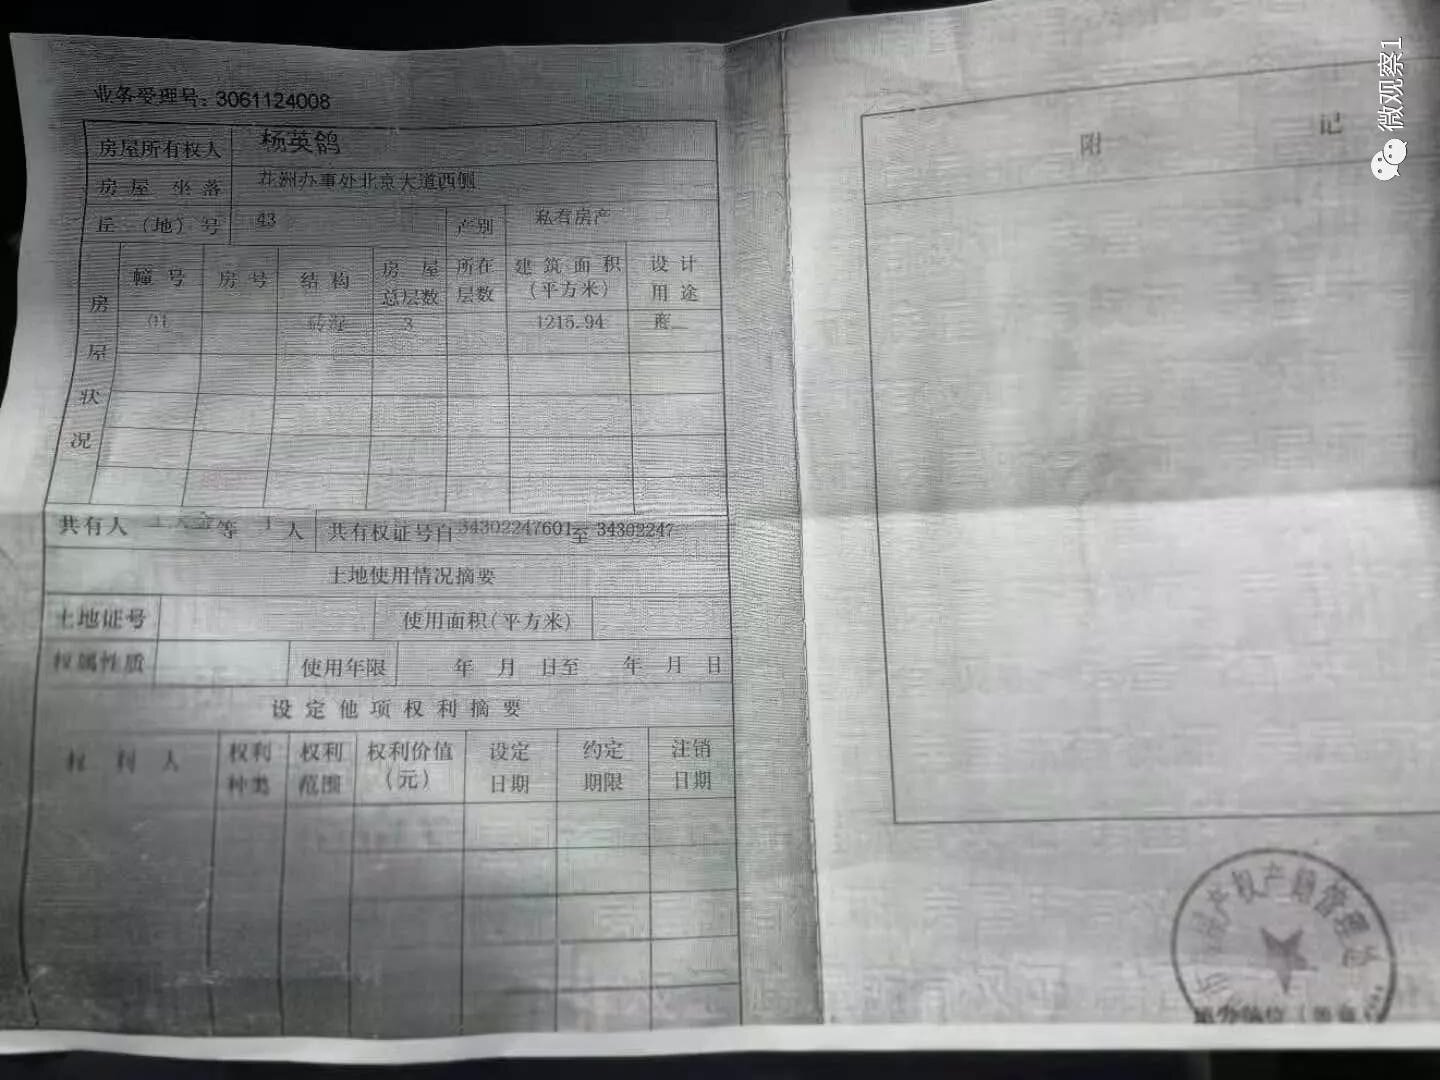 业务受理号：3061124008
房屋所有权人 杨英鸽
房屋坐落 办事处北京大道西侧
丘（地）号 43 产别 私有房产
房屋状况
幢号 房号 结构 房屋总层数 所在层数 建筑面积（平方米） 设计用途
01 砖混 3 1215.94
共有人 等 1 人 共有权证号自 34302247601 至 34302247
土地使用情况摘要
土地证号 使用面积（平方米）
权属性质 使用年限 年 月 日至 年 月 日
设定他项权利摘要
权利人 权利种类 权利范围 权利价值（元） 设定日期 约定期限 注销日期
附 记
产权产籍管理
微观察1